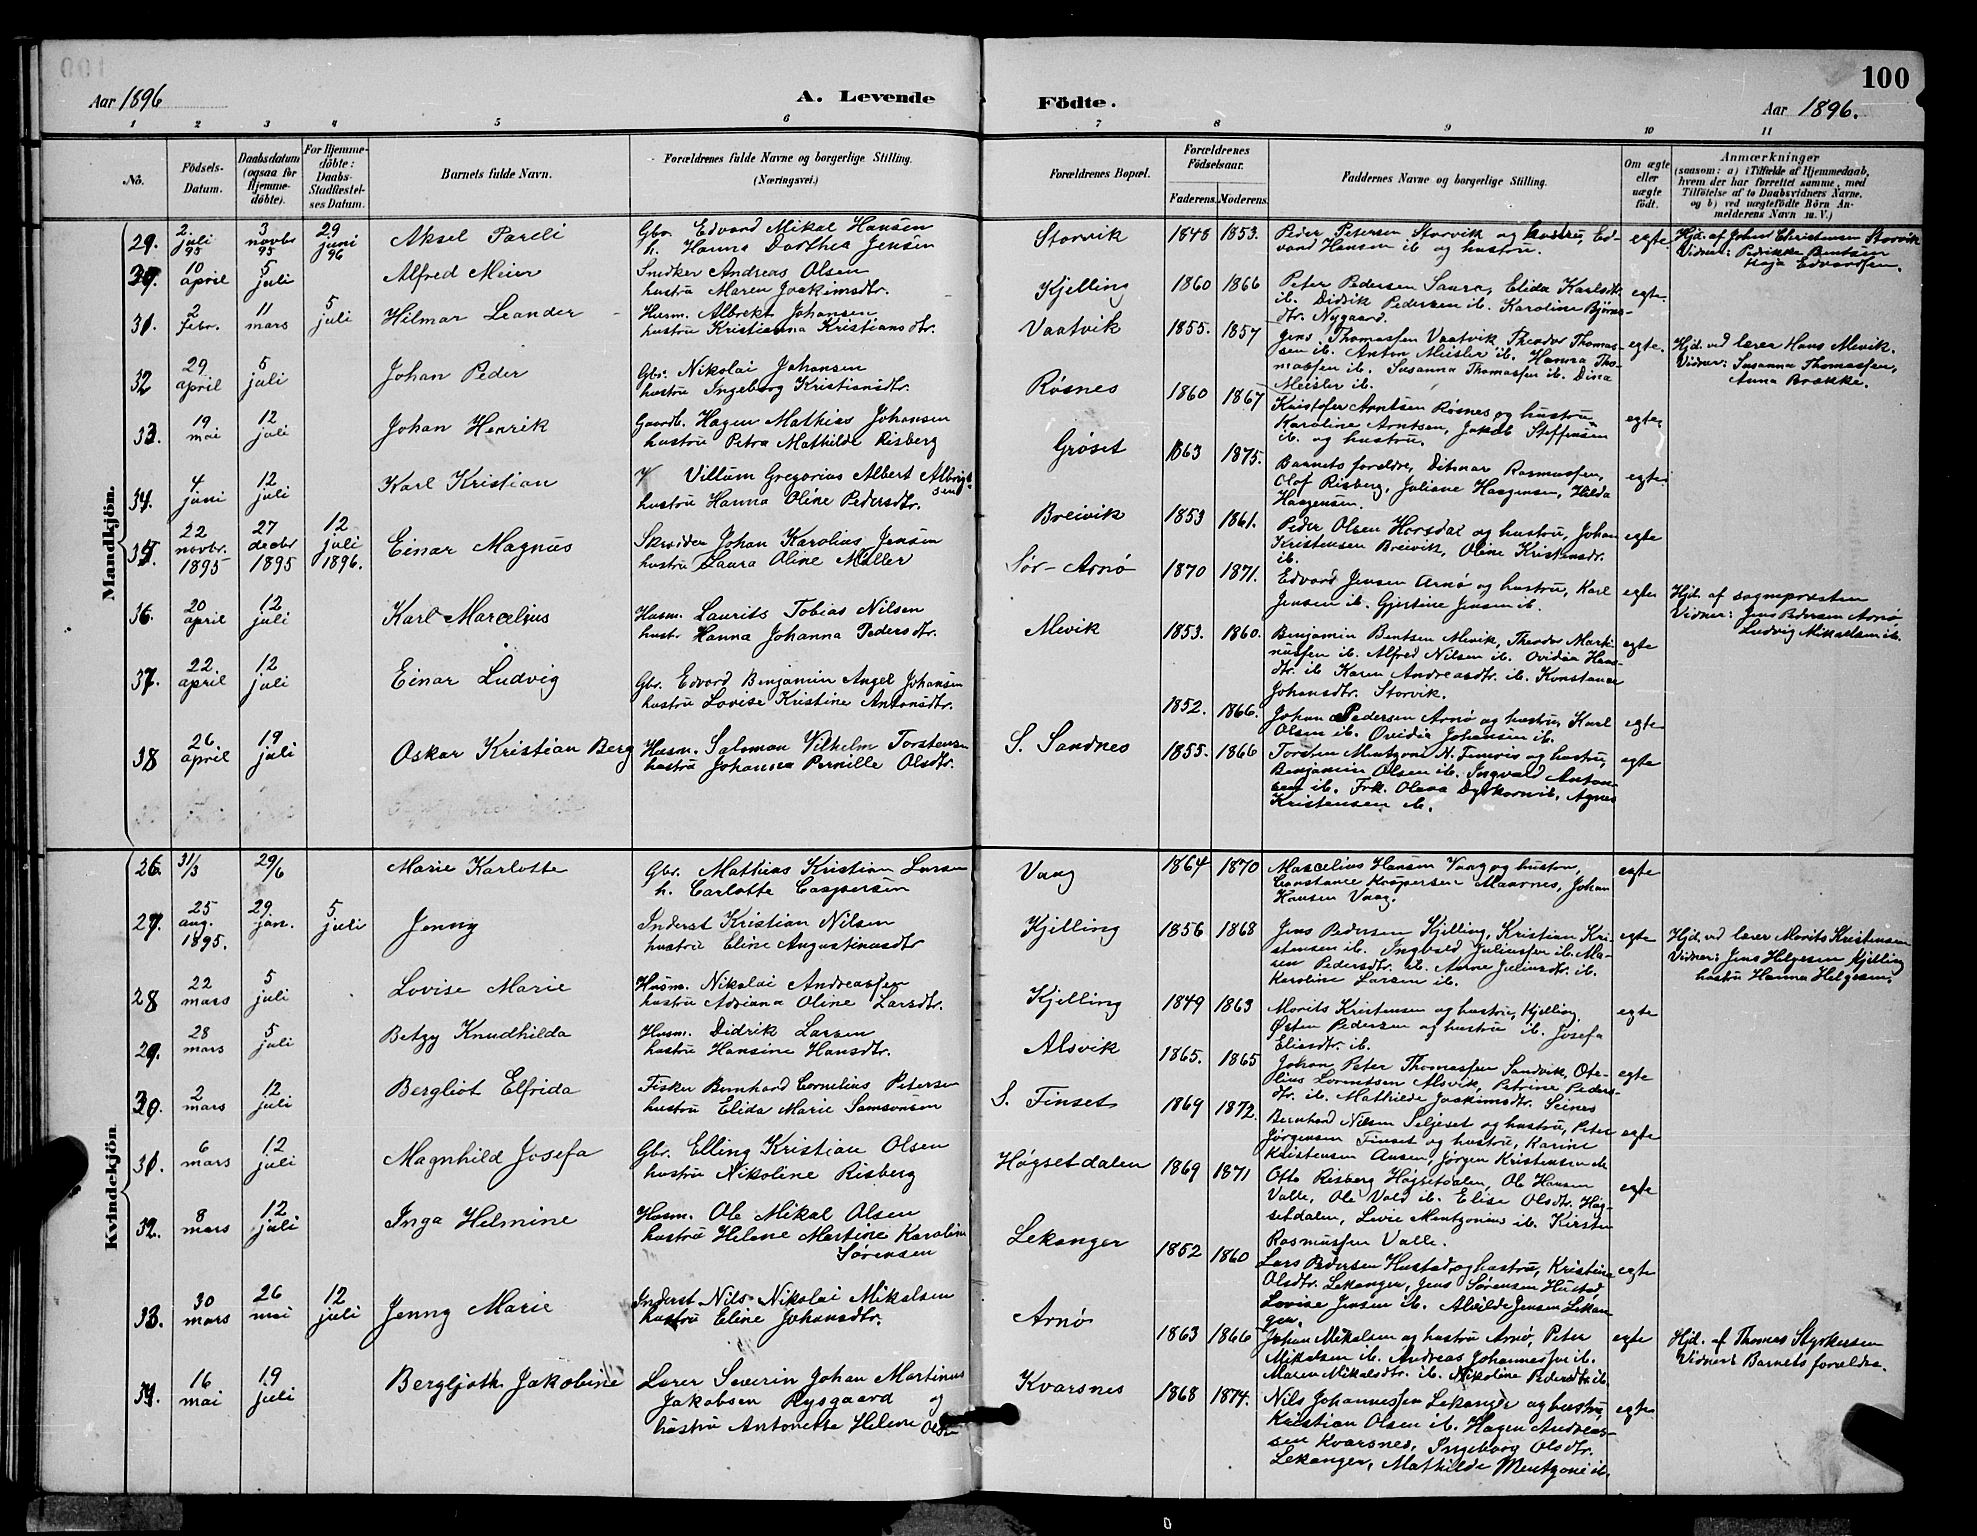 100
Aar 1896
A. Levende Födte.
Aar 1896.
1 2 3 4 5 6 7 8 9 10 11
No.
Födsels-Datum.
Daabsdatum (ogsaa for Hjemme-döbte).
For Hjemme-döbte: Daabs-Stadfæstel-ses Datum.
Barnets fulde Navn.
Forældrenes fulde Navne og borgerlige Stilling. (Næringsvei.)
Forældrenes Bopæl.
Forældrenes Födselsaar.
Faderens. Moderens.
Faddernes Navne og borgerlige Stilling.
Om ægte eller uægte födt.
Anmærkninger
(saasom: a) i Tilfælde af Hjemmedaab, hvem der har forrettet samme, med Tilföielse af to Daabsvidners Navne, og b) ved uægtefödte Börn An-melderens Navn m. V.)
Mandkjön.
29. 2. juli 95 3 novbr 95 29 juni 96 Aksel Pareli
Gbr. Edvard Mikal Hansen
h. Hanna Dorthea Jensen
Storvik 1848 1853.
Peder Petersen Storvik og hustru, Ed-
vard Hansen ib og hustru.
egte
Hjd. af Johan Christensen Storvik
Vidner: Pedrikke Bentsen
Maja Edvardsen.
30. 10 april 5 juli Alfred Meier
Snedker Andreas Olsen
hustru Maren Joakimsdtr.
Kjelling 1860 1866
Peter Pedersen Saura, Elida Karlsdtr
ib. Didrik Pedersen ib. Karoline Bjørns-
dtr. Nygaard.
egte
31. 2 febr. 11 mars 5 juli Hilmar Leander
Husm. Albrekt Johansen
hustru Kristianna Kristiansdtr.
Vaatvik 1855. 1857
Jens Thomassen Vaatvik, Theodor Thomas-
sen ib. Anton Meisler ib. Hanna Tho-
massen ib. Susanna Thomassen ib. Dina
Meisler ib.
egte.
Hjd. ved lærer Hans Mevik.
Vidner: Susanna Thomassen,
Anna Brække.
32 29 april 5 juli Johan Peder
Gbr. Nikolai Johansen
hustru Ingeborg Kristiansdtr.
Røsnes 1860 1867
Kristofer Arntsen Røsnes og hustru
Karoline Arntsen, Jakob Steffensen
ib. og hustru.
egte
33. 19 mai 12 juli Johan Henrik
Gaardb. Hagen Mathias Johansen
hustru Petra Mathilde Risberg
Grøset 1863 1875.
Barnets forældre, Ditmar Rasmussen,
Olof Risberg, Juliane Haagensen, Hilda
Haagensen.
egte
34. 4 juni 12 juli Karl Kristian
Villum Gregorius Albert Albrigt-
sen
hustru Hanna Oline Pedersdtr.
Breivik 1853 1861.
Peder Olsen Horsdal og hustru, Johan
Kristensen Breivik, Oline Kristensdr.
ib.
egte
35. 22 novbr. 1895 27 decbr 1895 12 juli 1896. Einar Magnus
Skrædder Johan Karolius Jensen
hustru Laura Oline Møller
Sør-Arnø 1870 1871.
Edvard Jensen Arnø og hustru, Karl
Jensen ib. Gjertine Jensen ib.
egte
Hjd. af sognepræsten
Vidner: Jens Pedersen Arnø
Ludvig Mikaelsen ib.
36. 20 april 12 juli Karl Marcelius
Husm. Laurits Tobias Nilsen
hustr. Hanna Johanna Pedersdtr.
Mevik 1853. 1860.
Benjamin Bentsen Mevik, Theodor Marti-
nussen ib. Alfred Nilsen ib. Ovidia Hans-
dtr. ib. Karen Andreasdtr. ib. Konstance
Johansdtr. Storvik.
egte
37. 22 april 12 juli Einar Ludvig
Gbr. Edvard Benjamin Angel Johansen
hustru Lovise Kristine Antonsdtr.
1852. 1866.
Johan Pedersen Arnø og hustru, Karl
Olsen ib. Ovidia Johansen ib.
egte
38 26 april 19 juli Oskar Kristian Berg
Husm. Salomon Vilhelm Torstensen
hustru Johanna Pernille Olsdtr.
S. Sandnes 1855. 1866
Torsten Mentzoni N. og hustru,
Benjamin Olsen ib. Ingvald Anton-
sen ib. Frk. Olava Dyrkorn ib. Agnes
Kristensen ib.
egte
Kvindekjön
26. 31/3 29/6 Marie Karlotte
Gbr. Mathias Kristian Larsen
h. Carlotte Caspersen
Vaag 1864 1870
Marcelius Hansen Vaag og hustru,
Constance Kaspersen Maarnes, Johan
Hansen Vaag.
egte
27. 25 aug. 1895. 29 jan. 5 juli Jenny
Inderst Kristian Nilsen
hustru Eline Augustinusdtr
Kjelling 1856 1868
Jens Pedersen Kjelling, Kristian Kri-
stensen ib. Ingvald Juliussen ib. Ma-
sen Pedersdtr. ib. Anne Juliusdtr. ib.
Karoline Larsen ib.
egte
Hjd. ved lærer Morits Kristensen
Vidner: Jens Helgesen Kjelling
hustru Hanna Helgesen.
28 22 mars 5 juli Lovise Marie
Husm. Nikolai Andreassen
hustru Adriana Oline Larsdtr.
Kjelling 1849 1863
Morits Kristensen og hustru, Kjelling,
Østen Pedersen og hustru ib. Josefa
Eliasdtr. ib.
egte
29. 28 mars 5 juli Betzy Knudhilda
Husm. Didrik Larsen
hustru Hansine Hansdtr.
Alsvik 1865. 1865
Johan Peter Thomassen Sandvik, Ofe-
lius Lorentsen Alsvik, Petrine Peders-
dtr. ib. Mathilde Joakimsdtr. Seines
egte
30. 2 mars 12 juli Bergliot Elfrida
Fisker Bernhard Cornelius Petersen
hustru Elida Marie Samsonsen
S. Finset 1869 1872.
Bernhard Nilsen Seljeset og hustru, Peter
Jørgensen Finset og hustru, Karine
Kristensen Ausen, Jørgen Kristensen ib
egte
31. 6 mars 12 juli Magnhild Josefa
Gbr. Elling Kristian Olsen
hustru Nikoline Risberg
Høgsetdalen 1869 1871
Otto Risberg Høgsetdalen, Ole Hansen
Valle, Ole Vold ib. Elise Olsdtr. Høg-
setdalen, Levie Mentzonius ib. Kirsten
Rasmussen Valle.
egte
32. 8 mars 12 juli Inga Helmine
Husm. Ole Mikal Olsen
hustru Helene Martine Karoline
Sørensen
Lekanger 1852 1860
Lars Pedersen Hustad og hustru, Kristine
Olsdtr. Lekanger, Jens Sørensen Hustad,
Lovise Jensen ib. Alvilde Jensen Lekan-
ger.
egte
33. 30 mars 26 mai 12 juli Jenny Marie
Inderst Nils Nikolai Mikalsen
hustru Eline Johansdtr.
Arnø 1863 1866
Johan Mikalsen og hustru Arnø, Peter
Mikalsen ib. Andreas Johannessen ib.
Maren Mikalsdtr. ib. Nikoline Pedersdtr. ib.
egte
Hjd. af Thomas Styrkersen
Vidner: Barnets forældre.
34. 16 mai 19 juli Bergljoth Jakobine
Lærer Severin Johan Martinus
Jakobsen Rysgaard og
hustru Antonette Helene Olsdtr
Kvarsnes 1868 1874.
Nils Johannessen Lekanger og hustru,
Kristian Olsen ib. Hagen Andreas-
sen Kvarsnes, Ingeborg Olsdtr.
Lekanger, Mathilde Mentzoni ib.
egte